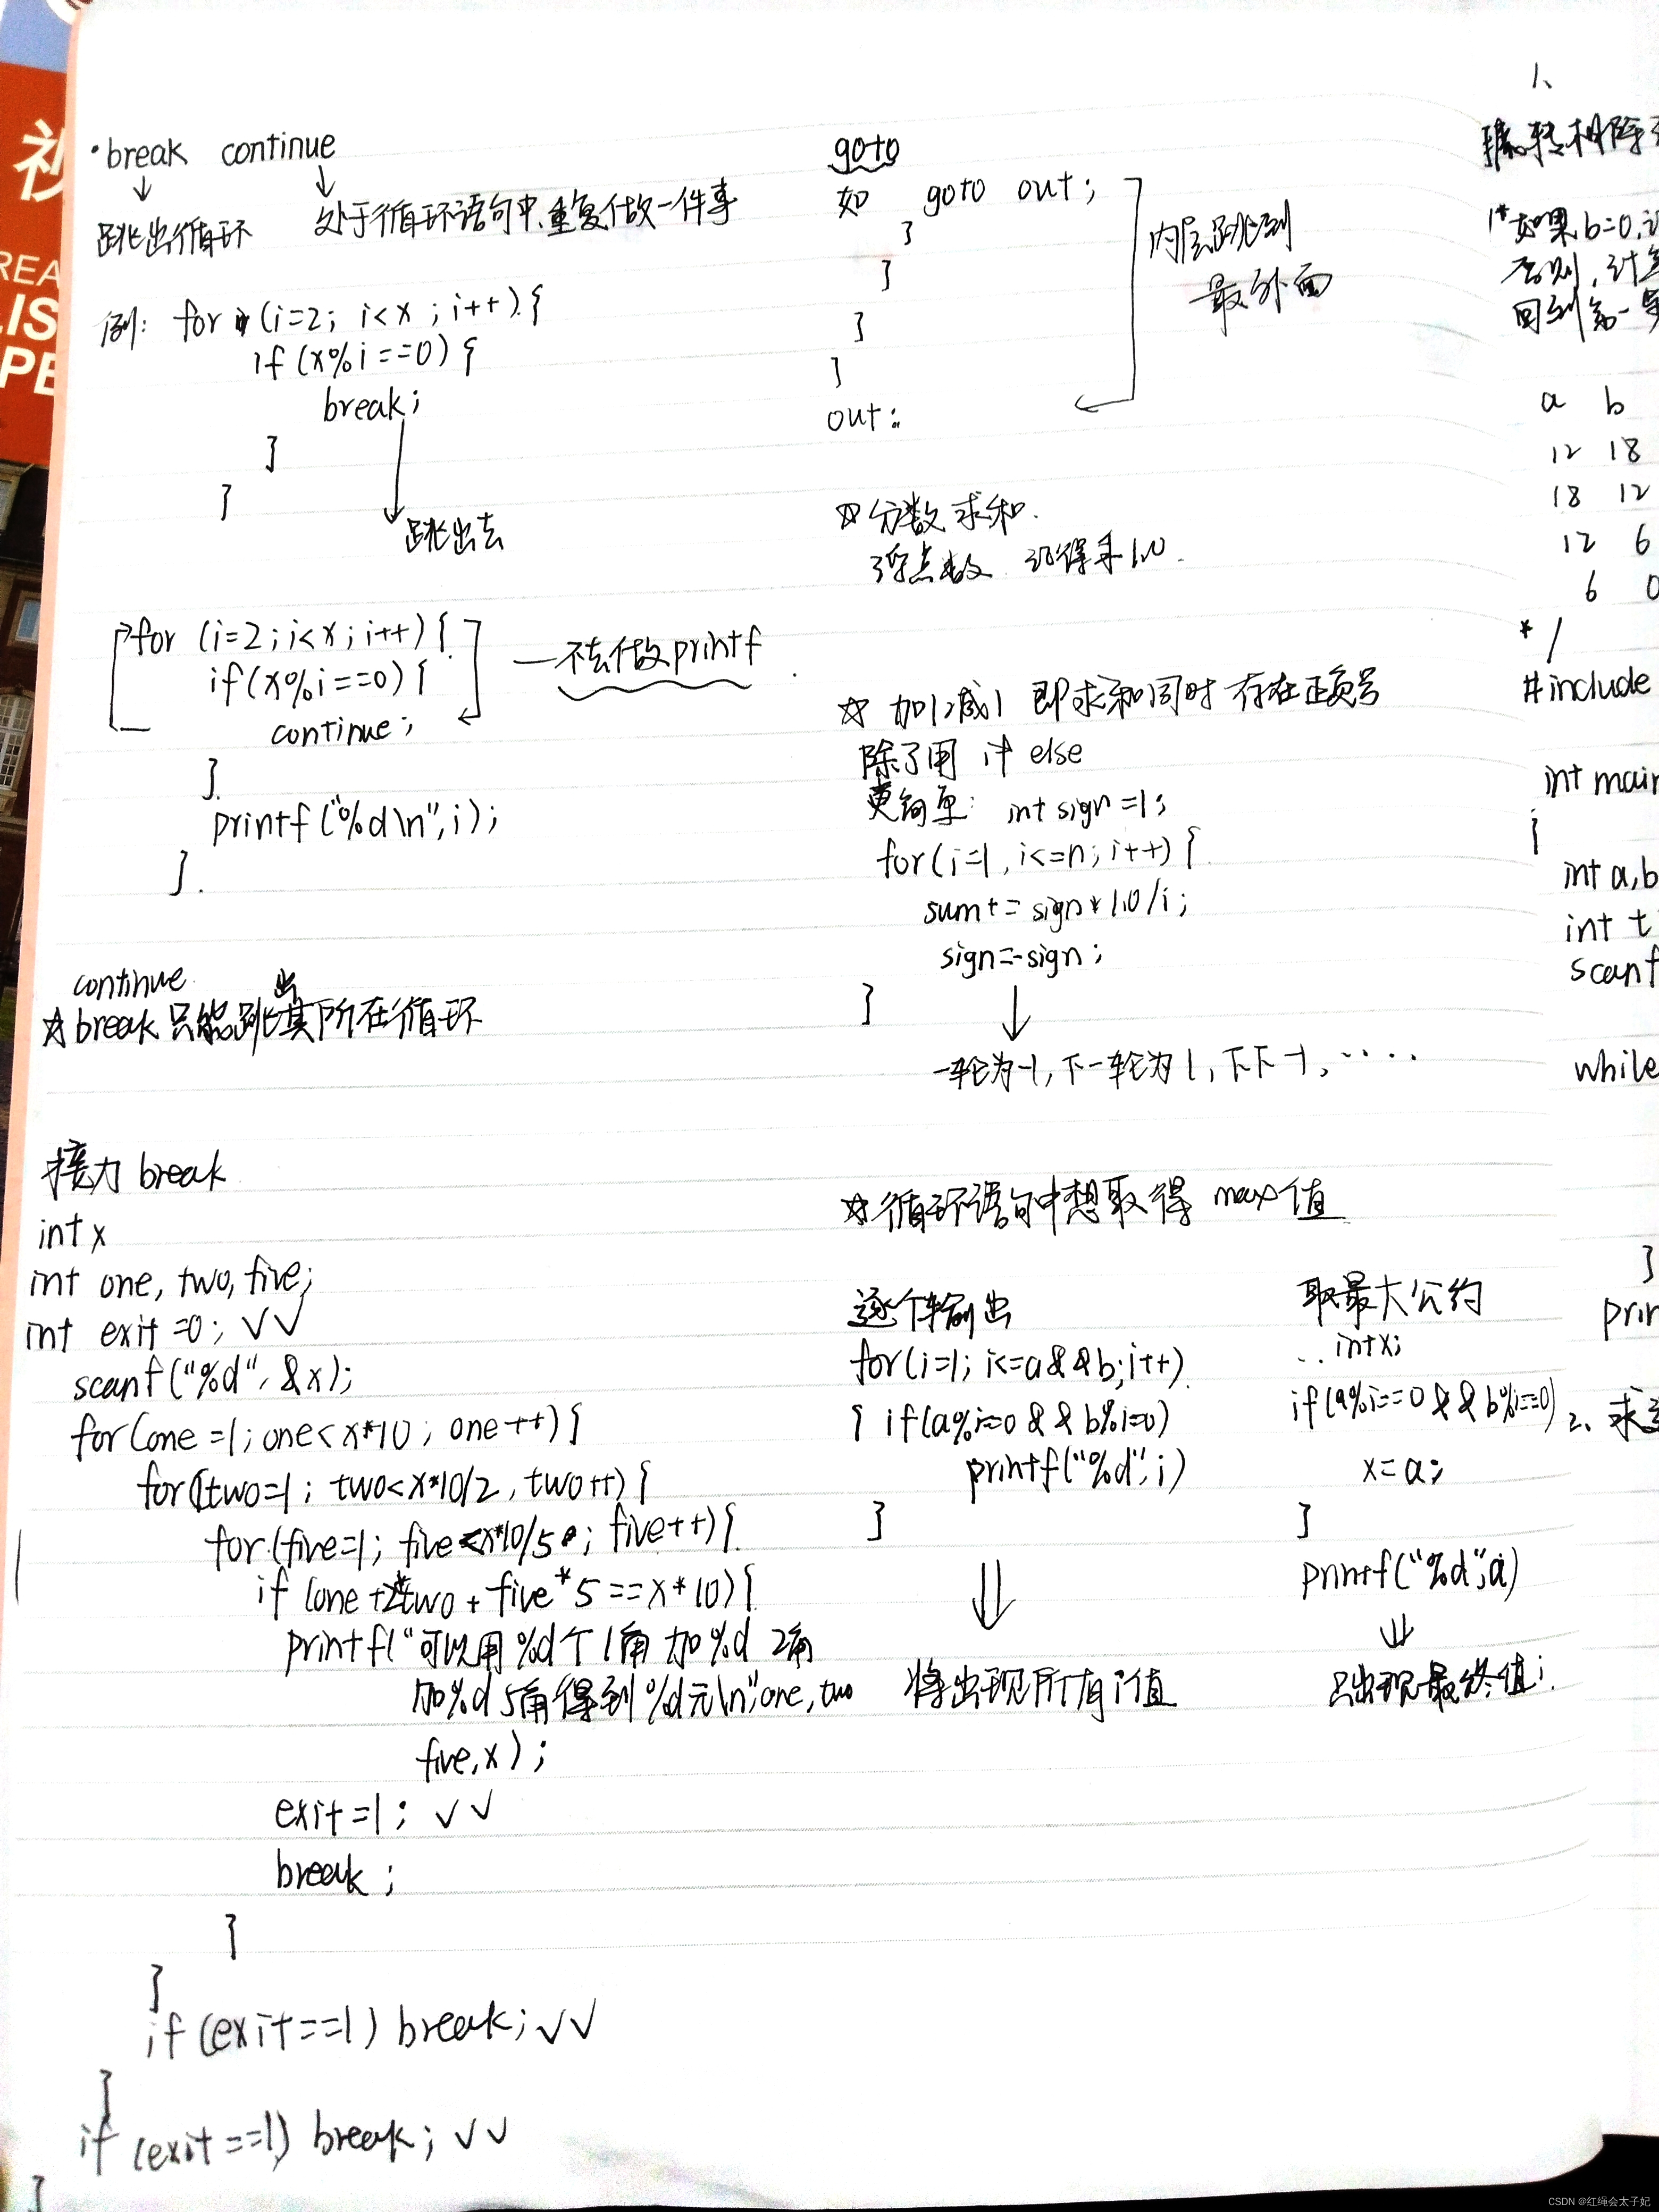 ·break continue
↓ ↓
跳出循环 处于循环语句中,重复做一件事
例: for (i=2; i<x ; i++) {
if (x%i==0) {
break;
}
}
跳出去
for (i=2; i<x; i++) {
if(x%i==0) {
continue;
}
printf("%d\n",i);
}
不去做printf
continue
☆break 只能跳出其所在循环
接力 break
int x
int one, two, five;
int exit =0; √√
scanf("%d", &x);
for(one =1; one<x*10; one++) {
for(two=1; two<x*10/2, two++) {
for(five=1; five<x*10/5; five++) {
if (one+2*two + five*5==x*10) {
printf("可以用%d个1角 加%d 2角
加%d 5角得到%d元\n",one, two
five,x);
exit=1; √√
break;
}
}
if (exit==1) break; √√
}
if (exit==1) break; √√
}
goto
如 goto out;
}
}
}
}
out:
内层跳到
最外面
☆分数求和.
浮点数 记得乘1.0.
☆ 加1,减1 即求和同时存在正负号
除了用 if else
更简单: int sign=1;
for(i=1, i<=n; i++) {
sum+= sign*1.0/i;
sign=-sign;
}
↓
一轮为-1, 下一轮为1, 下下-1, ······
☆循环语句中想取得 max值
逐个输出
for(i=1; i<=a&&b; i++)
{ if(a%i=0 && b%i=0)
printf("%d",i)
}
⇓
将出现所有i值
取最大公约
.. int x;
if(a%i==0 && b%i==0)
x=a;
}
printf("%d",a)
⇓
只出现最终值i.
1、
辗转相除
/*如果b=0,
否则,计算
回到第一
a b
12 18
18 12
12 6
6 0
*/
#include
int main
{
int a,b
int t
scanf
while
}
prin
2、求
祝
REA
LIS
PE
CSDN @红绳会太子妃